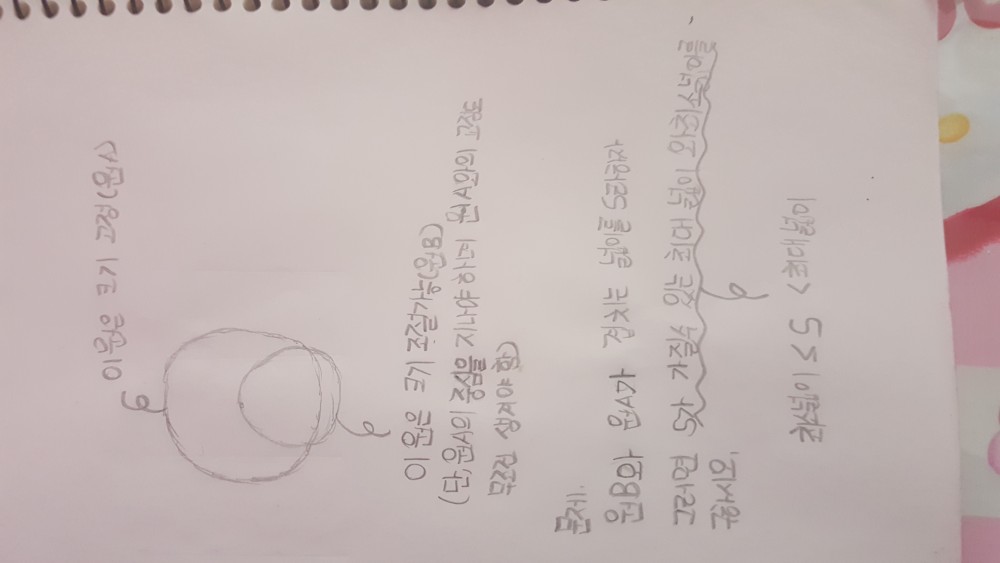 이 원은 크기 고정(원A)
이 원은 크기 조절가능(원B)
(단, 원A의 중심을 지나야 하며 원A와의 교점도
무조건 생겨야 함)
문제.
원B와 원A가 겹치는 넓이를 S라하자
그러면 S가 가질수 있는 최대 넓이 와 최소넓이를
구하시오.
최소넓이 ≤ S < 최대넓이